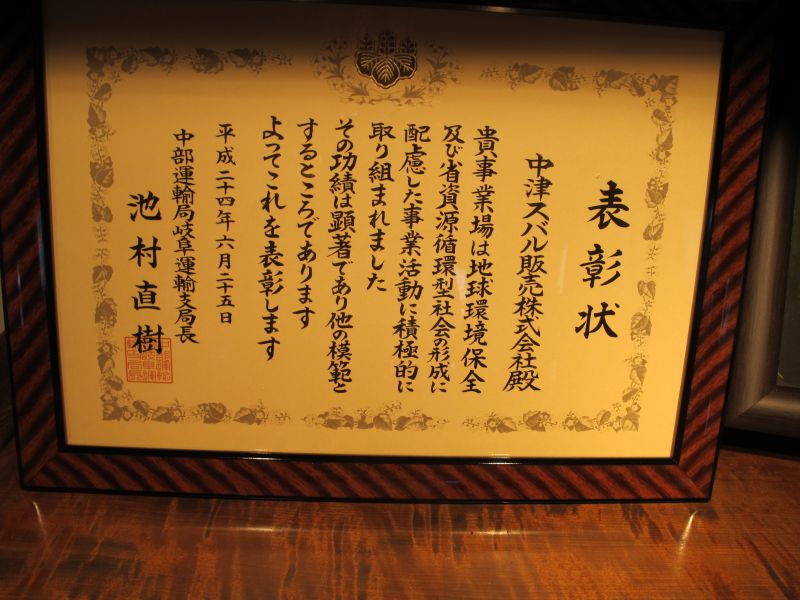 表彰状
中津スバル販売株式会社殿
貴事業場は地球環境保全
及び省資源循環型社会の形成に
配慮した事業活動に積極的に
取り組まれました
その功績は顕著であり他の模範と
するところであります
よってこれを表彰します
平成二十四年六月二十五日
中部運輸局岐阜運輸支局長
池村直樹